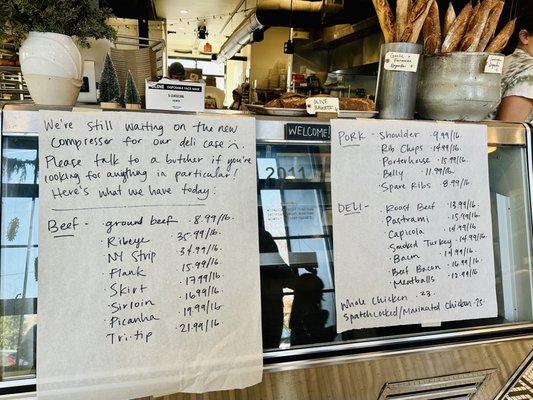 Garlic Parmesan
Country Loaf
OLIVE BAGUETTE
DISPOSABLE FACE MASK
WELCOME!
2011
We're still waiting on the new
Compresser for our deli case :(.
Please talk to a butcher if you're
looking for anything in particular!
Here's what we have today:
Beef - ground beef . 8.99/lb.
Ribeye . 35.99/lb.
NY Strip . 34.99/lb.
Flank . 15.99/lb.
Skirt . 17.99/lb.
Sirloin . 16.99/lb.
Picanha . 19.99/lb.
Tri-tip . 21.99/lb.
PORK - Shoulder . 9.99/lb.
Rib Chops . 14.99/lb.
Porterhouse . 15.99/lb.
Belly . 11.99/lb.
Spare Ribs . 8.99/lb.
DELI - Roast Beef . 13.99/lb.
Pastrami . 15.99/lb.
Capicola . 14.99/lb.
Smoked Turkey . 14.99/lb.
Bacon . 14.99/lb.
Beef Bacon . 16.99/lb.
Meatballs . 12.99/lb.
Whole Chicken . 23.
Spatchcocked/Marinated Chicken . 25.